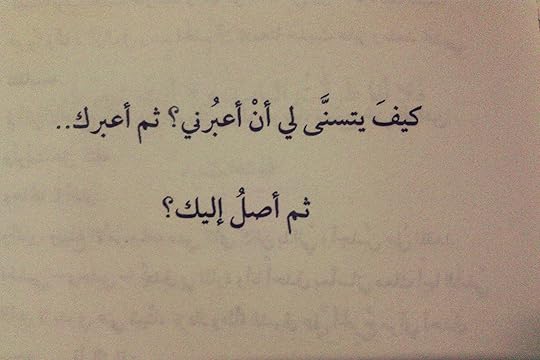 كيفَ يتسنَّى لي أنْ أعبُرني؟ ثم أعبرك..
ثم أصلُ إليك؟